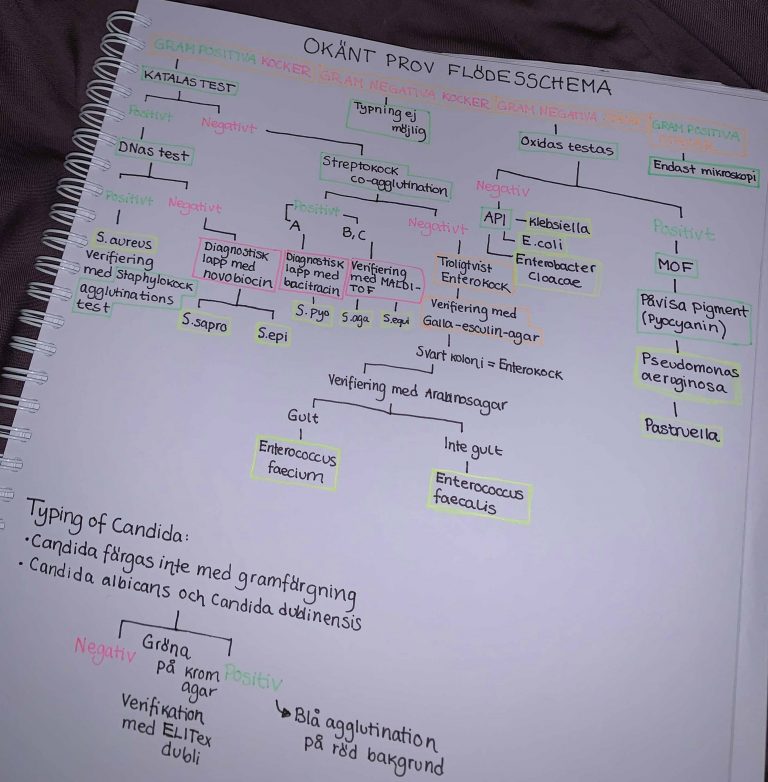 OKÄNT PROV FLÖDESSCHEMA
GRAM POSITIVA KOCKER
GRAM NEGATIVA KOCKER
GRAM NEGATIVA
GRAM POSITIVA
KATALAS TEST
Positivt
Negativt
Typning ej
möjlig
Oxidas testas
Endast mikroskopi
DNas test
Streptokock
co-agglutination
Negativ
Positivt
API
Klebsiella
E.coli
Enterobacter
Cloacae
MOF
Påvisa pigment
(Pyocyanin)
Pseudomonas
aeroginosa
Pastruella
Positivt
Negativt
Positivt
A
B, C
Negativt
S. aureus
Verifiering
med Staphylokock
agglutinations
test
Diagnostisk
lapp med
novobiocin
S.sapro
S.epi
Diagnostisk
lapp med
bacitracin
S. pyo
Verifiering
med MALDI-
TOF
S.aga
S.equi
Troligtvist
Enterokock
Verifiering med
Galla-esculin-agar
Svart koloni = Enterokock
Verifiering med Arabinosagar
Gult
Inte gult
Enterococcus
faecium
Enterococcus
faecalis
Typing of Candida:
• Candida färgas inte med gramfärgning
• Candida albicans och Candida dublinensis
Negativ
Gröna
på krom
agar
Positiv
Verifikation
med ELITex
dubli
Blå agglutination
på röd bakgrund